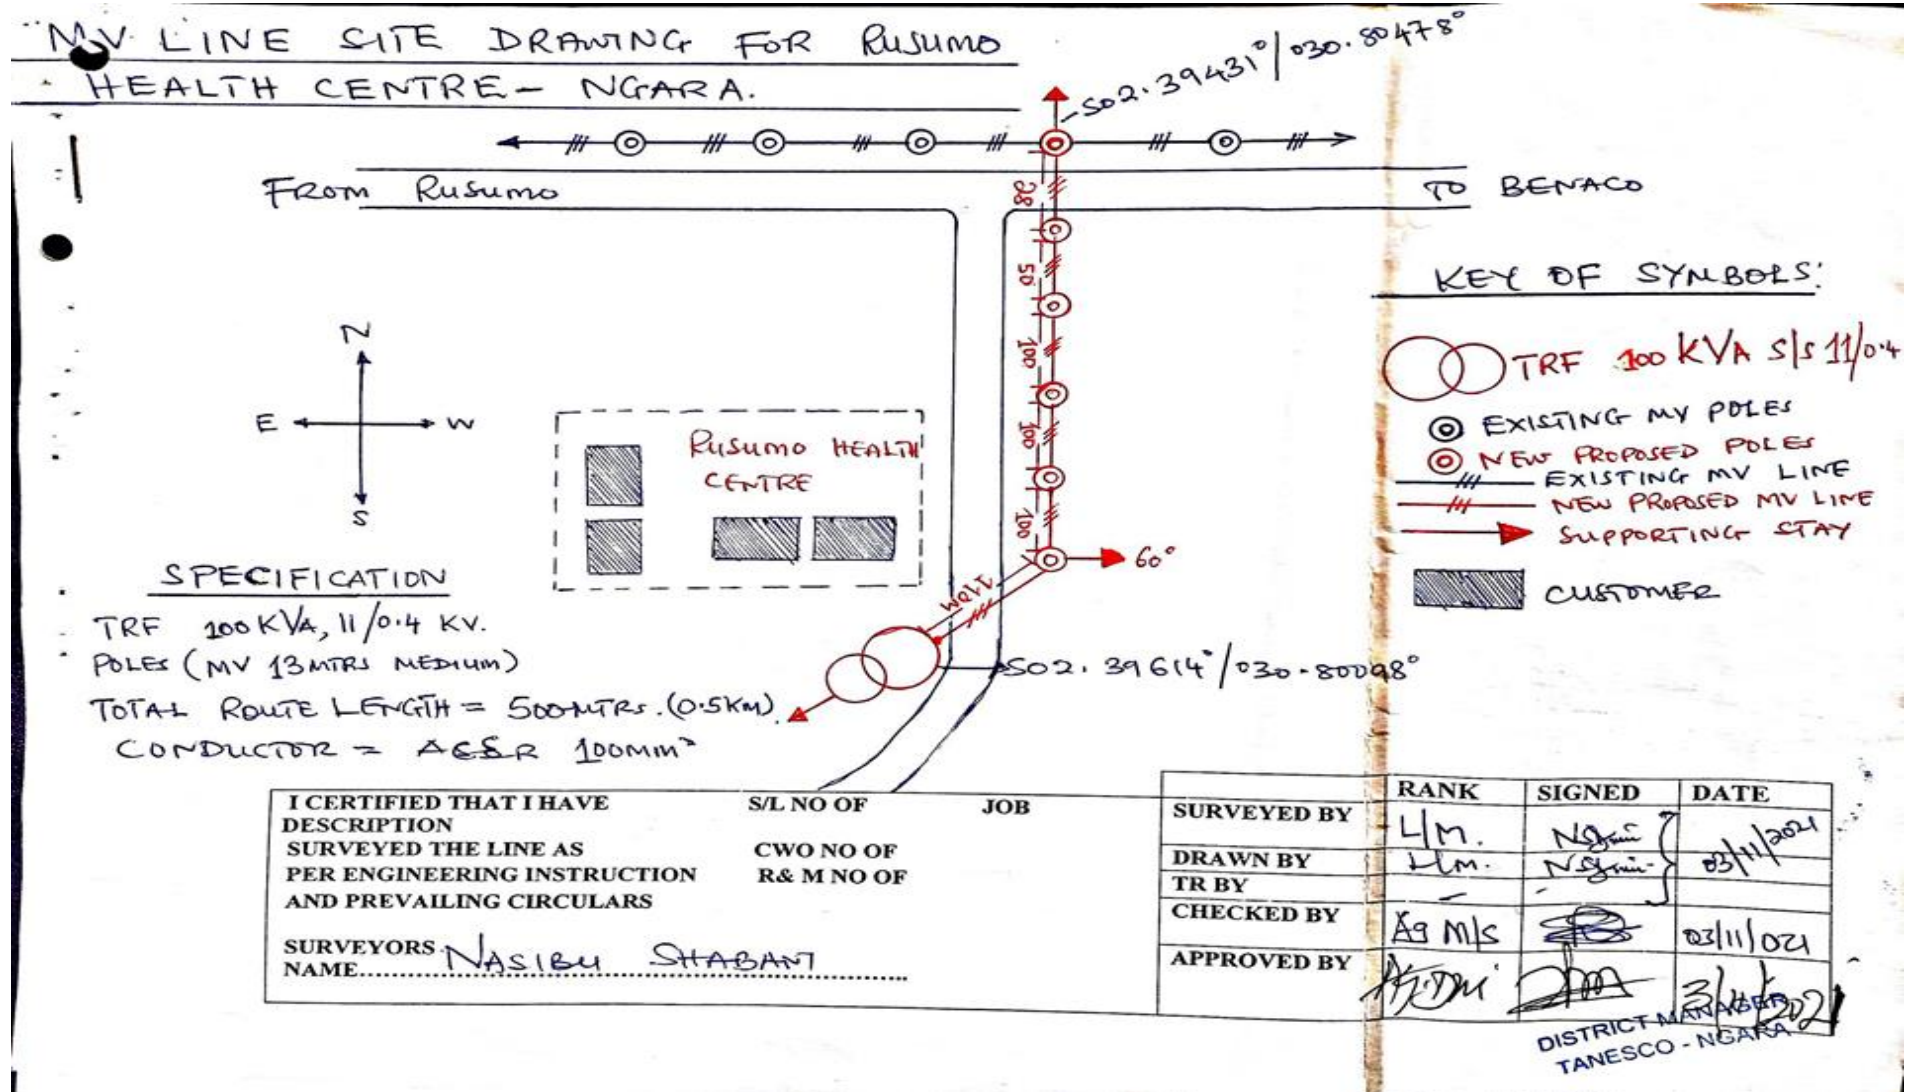 MV LINE SITE DRAWING FOR RUSUMO
HEALTH CENTRE - NGARA.
S02.39431°/030.80478°
FROM RUSUMO
TO BENACO
28
50
100
100
100
60°
110M
S02.39614°/030.80098°
N
E
W
S
RUSUMO HEALTH
CENTRE
KEY OF SYMBOLS:
TRF 100 KVA S/S 11/0.4
EXISTING MV POLES
NEW PROPOSED POLES
EXISTING MV LINE
NEW PROPOSED MV LINE
SUPPORTING STAY
CUSTOMER
SPECIFICATION
TRF 100KVA, 11/0.4 KV.
POLES (MV 13MTRS MEDIUM)
TOTAL ROUTE LENGTH = 500MTRS.(0.5KM)
CONDUCTOR = ACSR 100mm²
I CERTIFIED THAT I HAVE S/L NO OF JOB
DESCRIPTION
SURVEYED THE LINE AS CWO NO OF
PER ENGINEERING INSTRUCTION R& M NO OF
AND PREVAILING CIRCULARS
SURVEYORS
NAME NASIBU SHABANI
RANK SIGNED DATE
SURVEYED BY L/M. 03/11/2021
DRAWN BY L/m.
TR BY -
CHECKED BY Ag M/S 03/11/021
APPROVED BY
DISTRICT MANAGER
TANESCO - NGARA